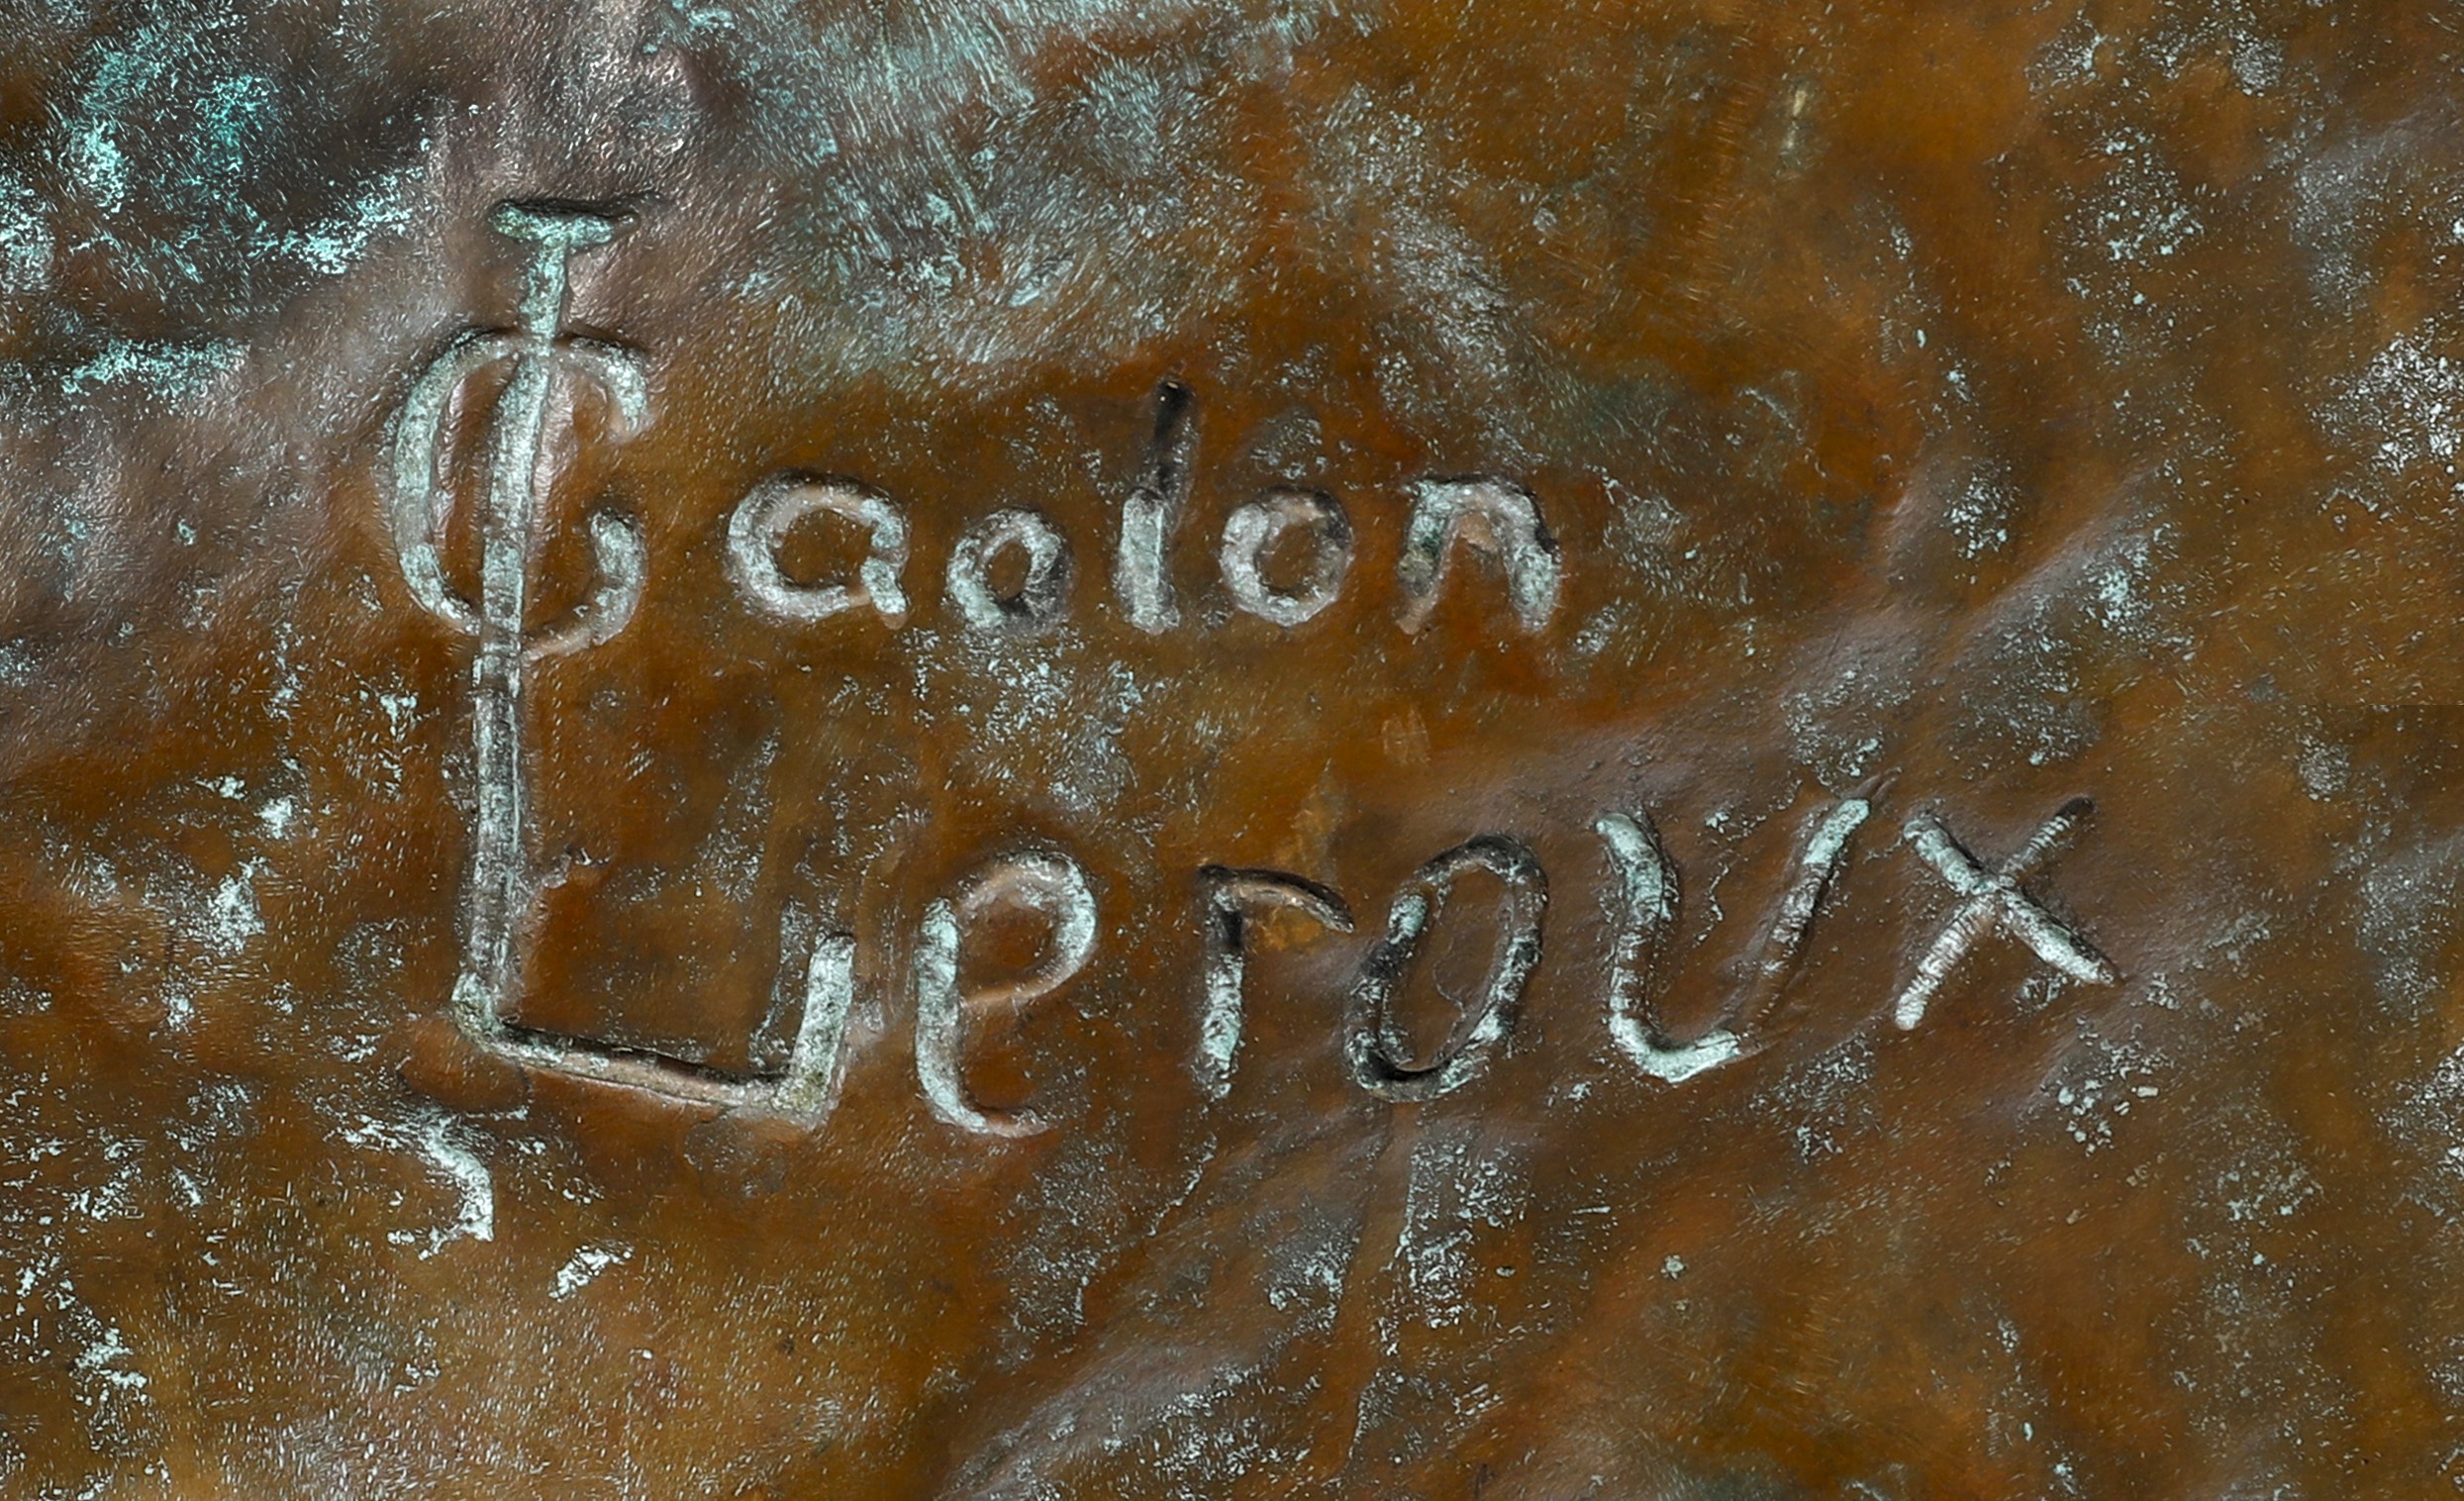 Gaston
Leroux